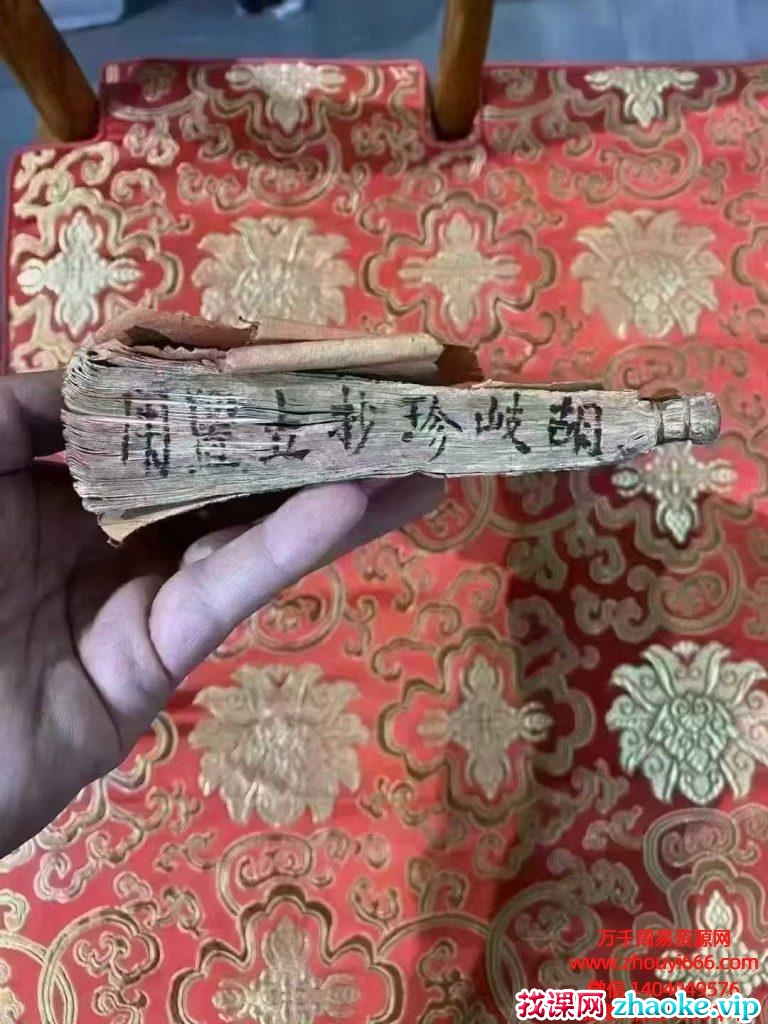 胡岐珍抄立用
万千周易资源网
www.zhouyi666.com
微信 1404049576
找课网 zhaoke.vip